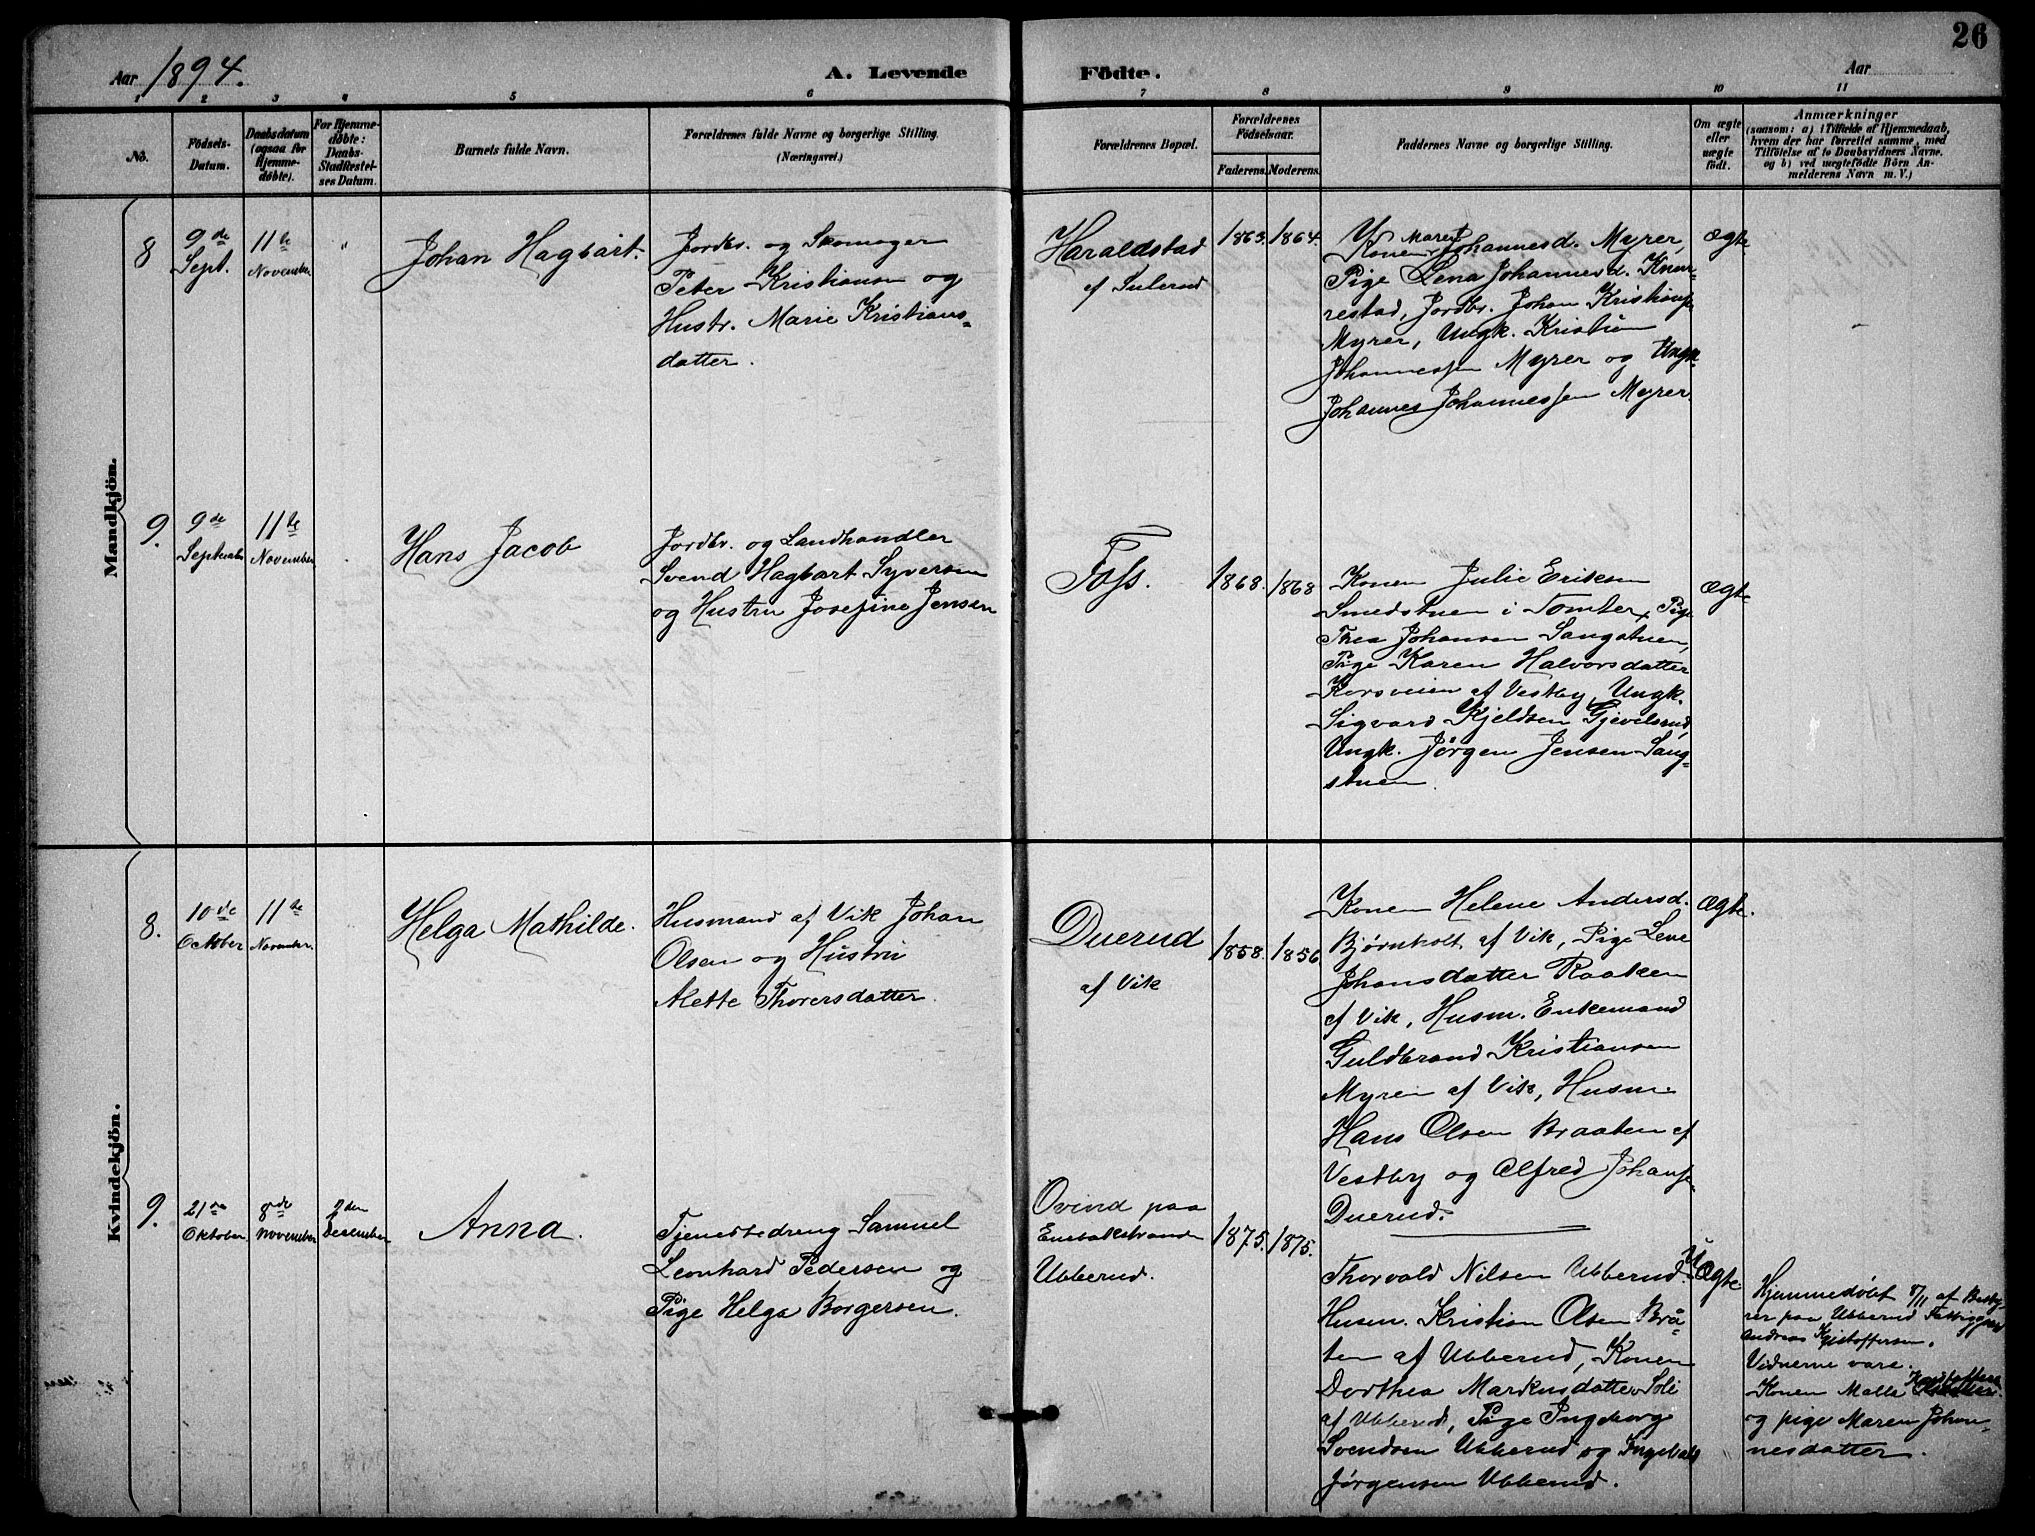 26
Aar 1894.
A. Levende Födte.
Aar
1 2 3 4 5 6 7 8 9 10 11
No.
Födsels-
Datum.
Daabsdatum
(ogsaa for
Hjemme-
døbte).
For Hjemme-
døbte:
Daabs-
Stadfæstel-
ses Datum.
Barnets fulde Navn.
Forældrenes fulde Navne og borgerlige Stilling.
(Næringsvei.)
Forældrenes Bopæl.
Forældrenes
Födselsaar.
Faderens. Moderens.
Faddernes Navne og borgerlige Stilling.
Om ægte
eller
uægte
født.
Anmærkninger
(saasom: a) i Tilfælde af Hjemmedaab,
hvem der har forrettet samme, med
Tilföielse af to Daabsvidners Navne.
og b) ved uægtefödte Börn An-
melderens Navn m. V.)
Mandkjön.
8
9de
Sept.
11te
November
"
Johan Hagbart.
Jordbr. og Skomager
Peter Kristiansen og
Hustr. Marie Kristians-
datter.
Haraldstad
af Sulerud
1863. 1864.
Konen Maren Johannesd. Myrer,
Pige Lena Johannesd. Knar-
restad, Jordbr. Johan Kristians.
Myrer, Ungk. Kristian
Johannessen Myrer og Ungk.
Johannes Johannessen Myrer.
Ægte
9.
9de
September
11te
November
Hans Jacob
Jordbr. og Landhandler
Svend Hagbart Syversen
og Hustru Josefine Jensen
Foss.
1868. 1868
Konen Julie Eriksen
Smedstuen i Tomter, Pige
Thea Johansen Sangstuen,
Pige Karen Halvorsdatter
Korsveien af Vestby, Ungk.
Sigvard Kjeldsen Gjevelsrud,
Ungk. Jørgen Jensen Sang-
stuen.
Ægte
Kvindekjön.
8.
10de
October
11te
November.
Helga Mathilde.
Husmand af Vik Johan
Olsen og Hustru
Mette Thorersdatter.
Duerud
af Vik
1858. 1856
Konen Helene Andersd.
Bjørnholt af Vik, Pige Lene
Johansdatter Raaken
af Vik, Husm. Enkemand
Guldbrand Kristiansen
Myren af Vik, Husm.
Hans Olsen Braaten af
Vestby og Alfred Johans.
Duerud.
Ægte.
9.
21de
Oktober.
8de
November
2den
December
Anna.
Tjenestedreng Samuel
Leonhard Pedersen og
Pige Helga Borgersen.
Ovind paa
Ubberud.
1875. 1875.
Thorvald Nilsen Ubberud.
Husm. Kristian Olsen Brå-
ten af Ubberud, Konen
Dorthea Markusdatter Soli
af Ubberud, Pige Ingeborg
Svendsen Ubberud og
Jørgensen Ubberud.
UÆgte.
Hjemmedøbt 8/11 af
paa Ubberud
Andreas Kristoffersen.
Vidnerne vare.
Konen Malla
og pige Maren Johan-
nesdatter.